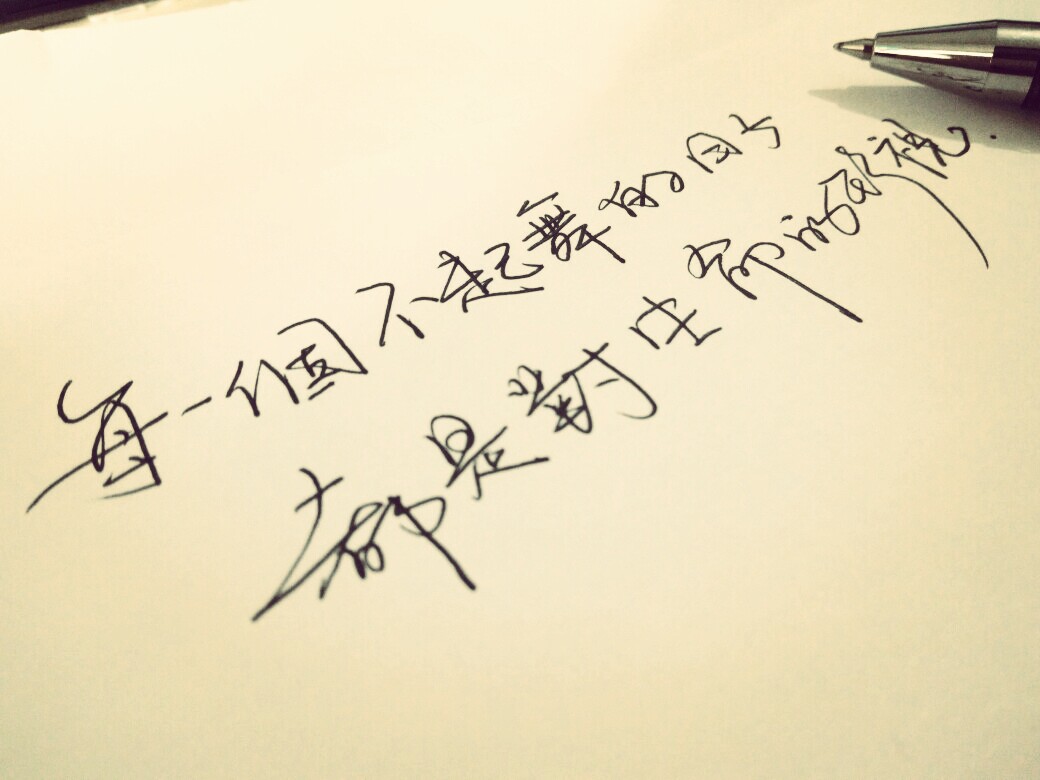 每一個不起舞的日子
都是對生命